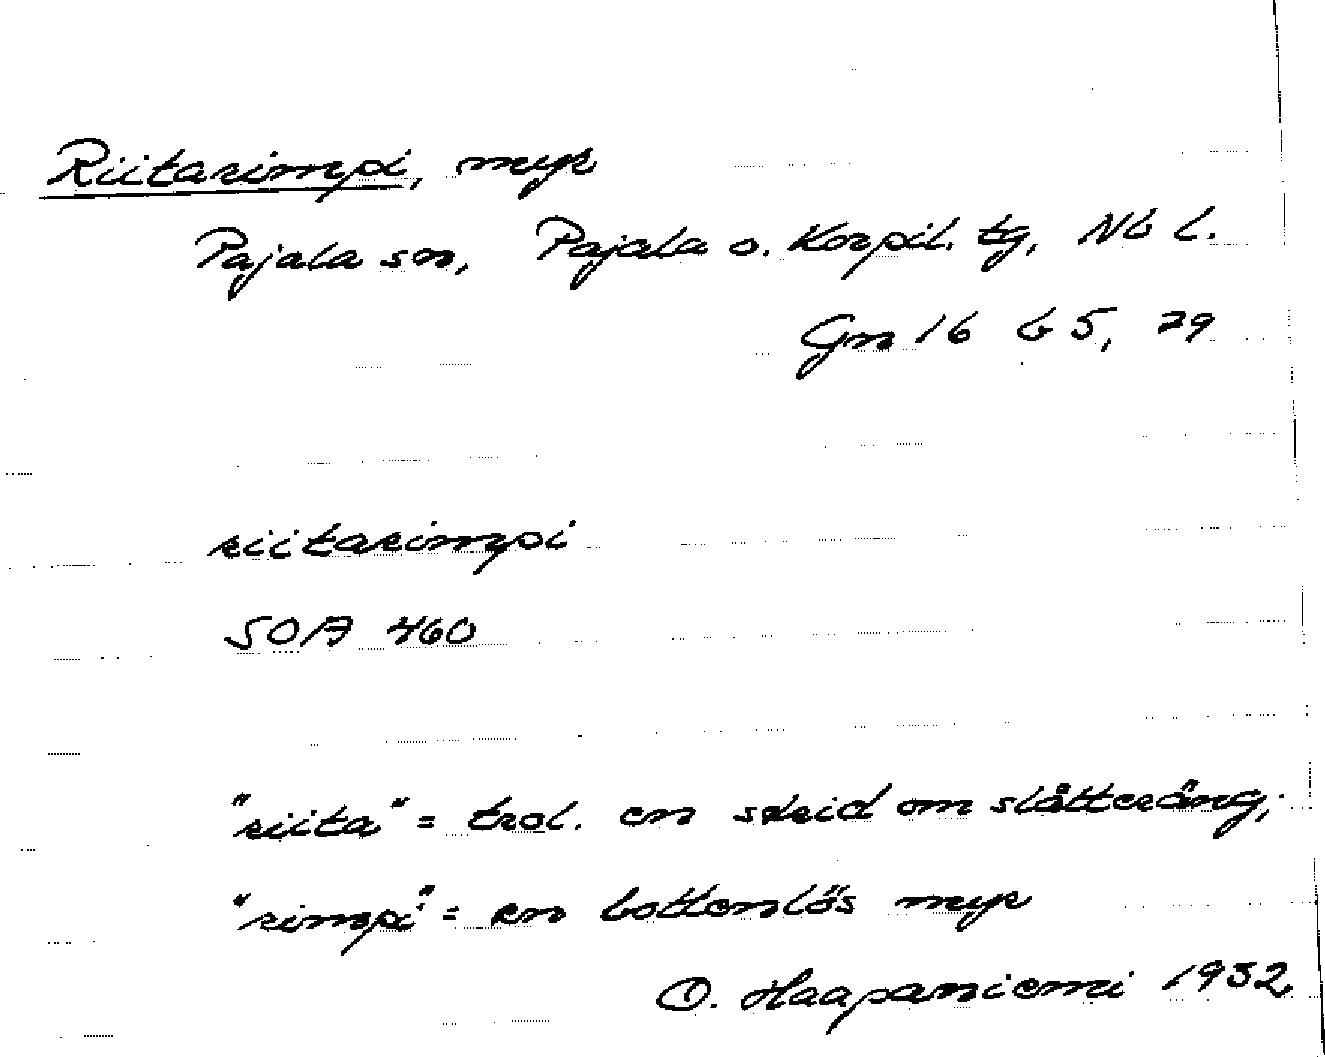 Riitarimpi, myr
Pajala sn, Pajala o. Korpil. tg, Nb l.
Gn 16 b 5, 29
riitarimpi
SOA 460
"riita" = trol. en strid om slåtteräng,
"rimpi" = en bottenlös myr
O. Haapaniemi 1932